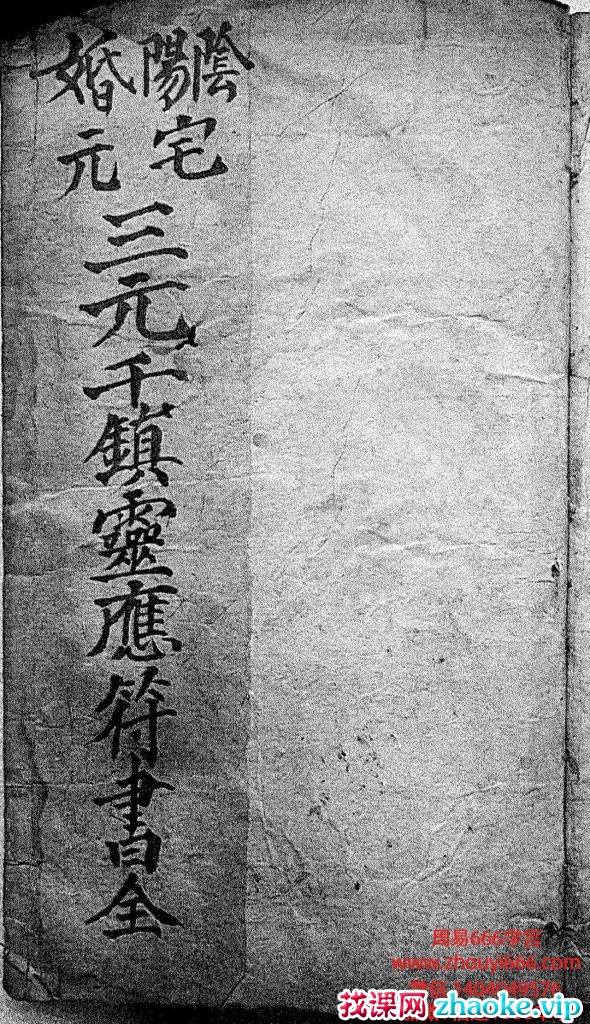 陰陽宅
婚元
三元千鎮靈應符書全
周易666学院
www.zhouyi666.com
1404049576
找课网 zhaoke.vip